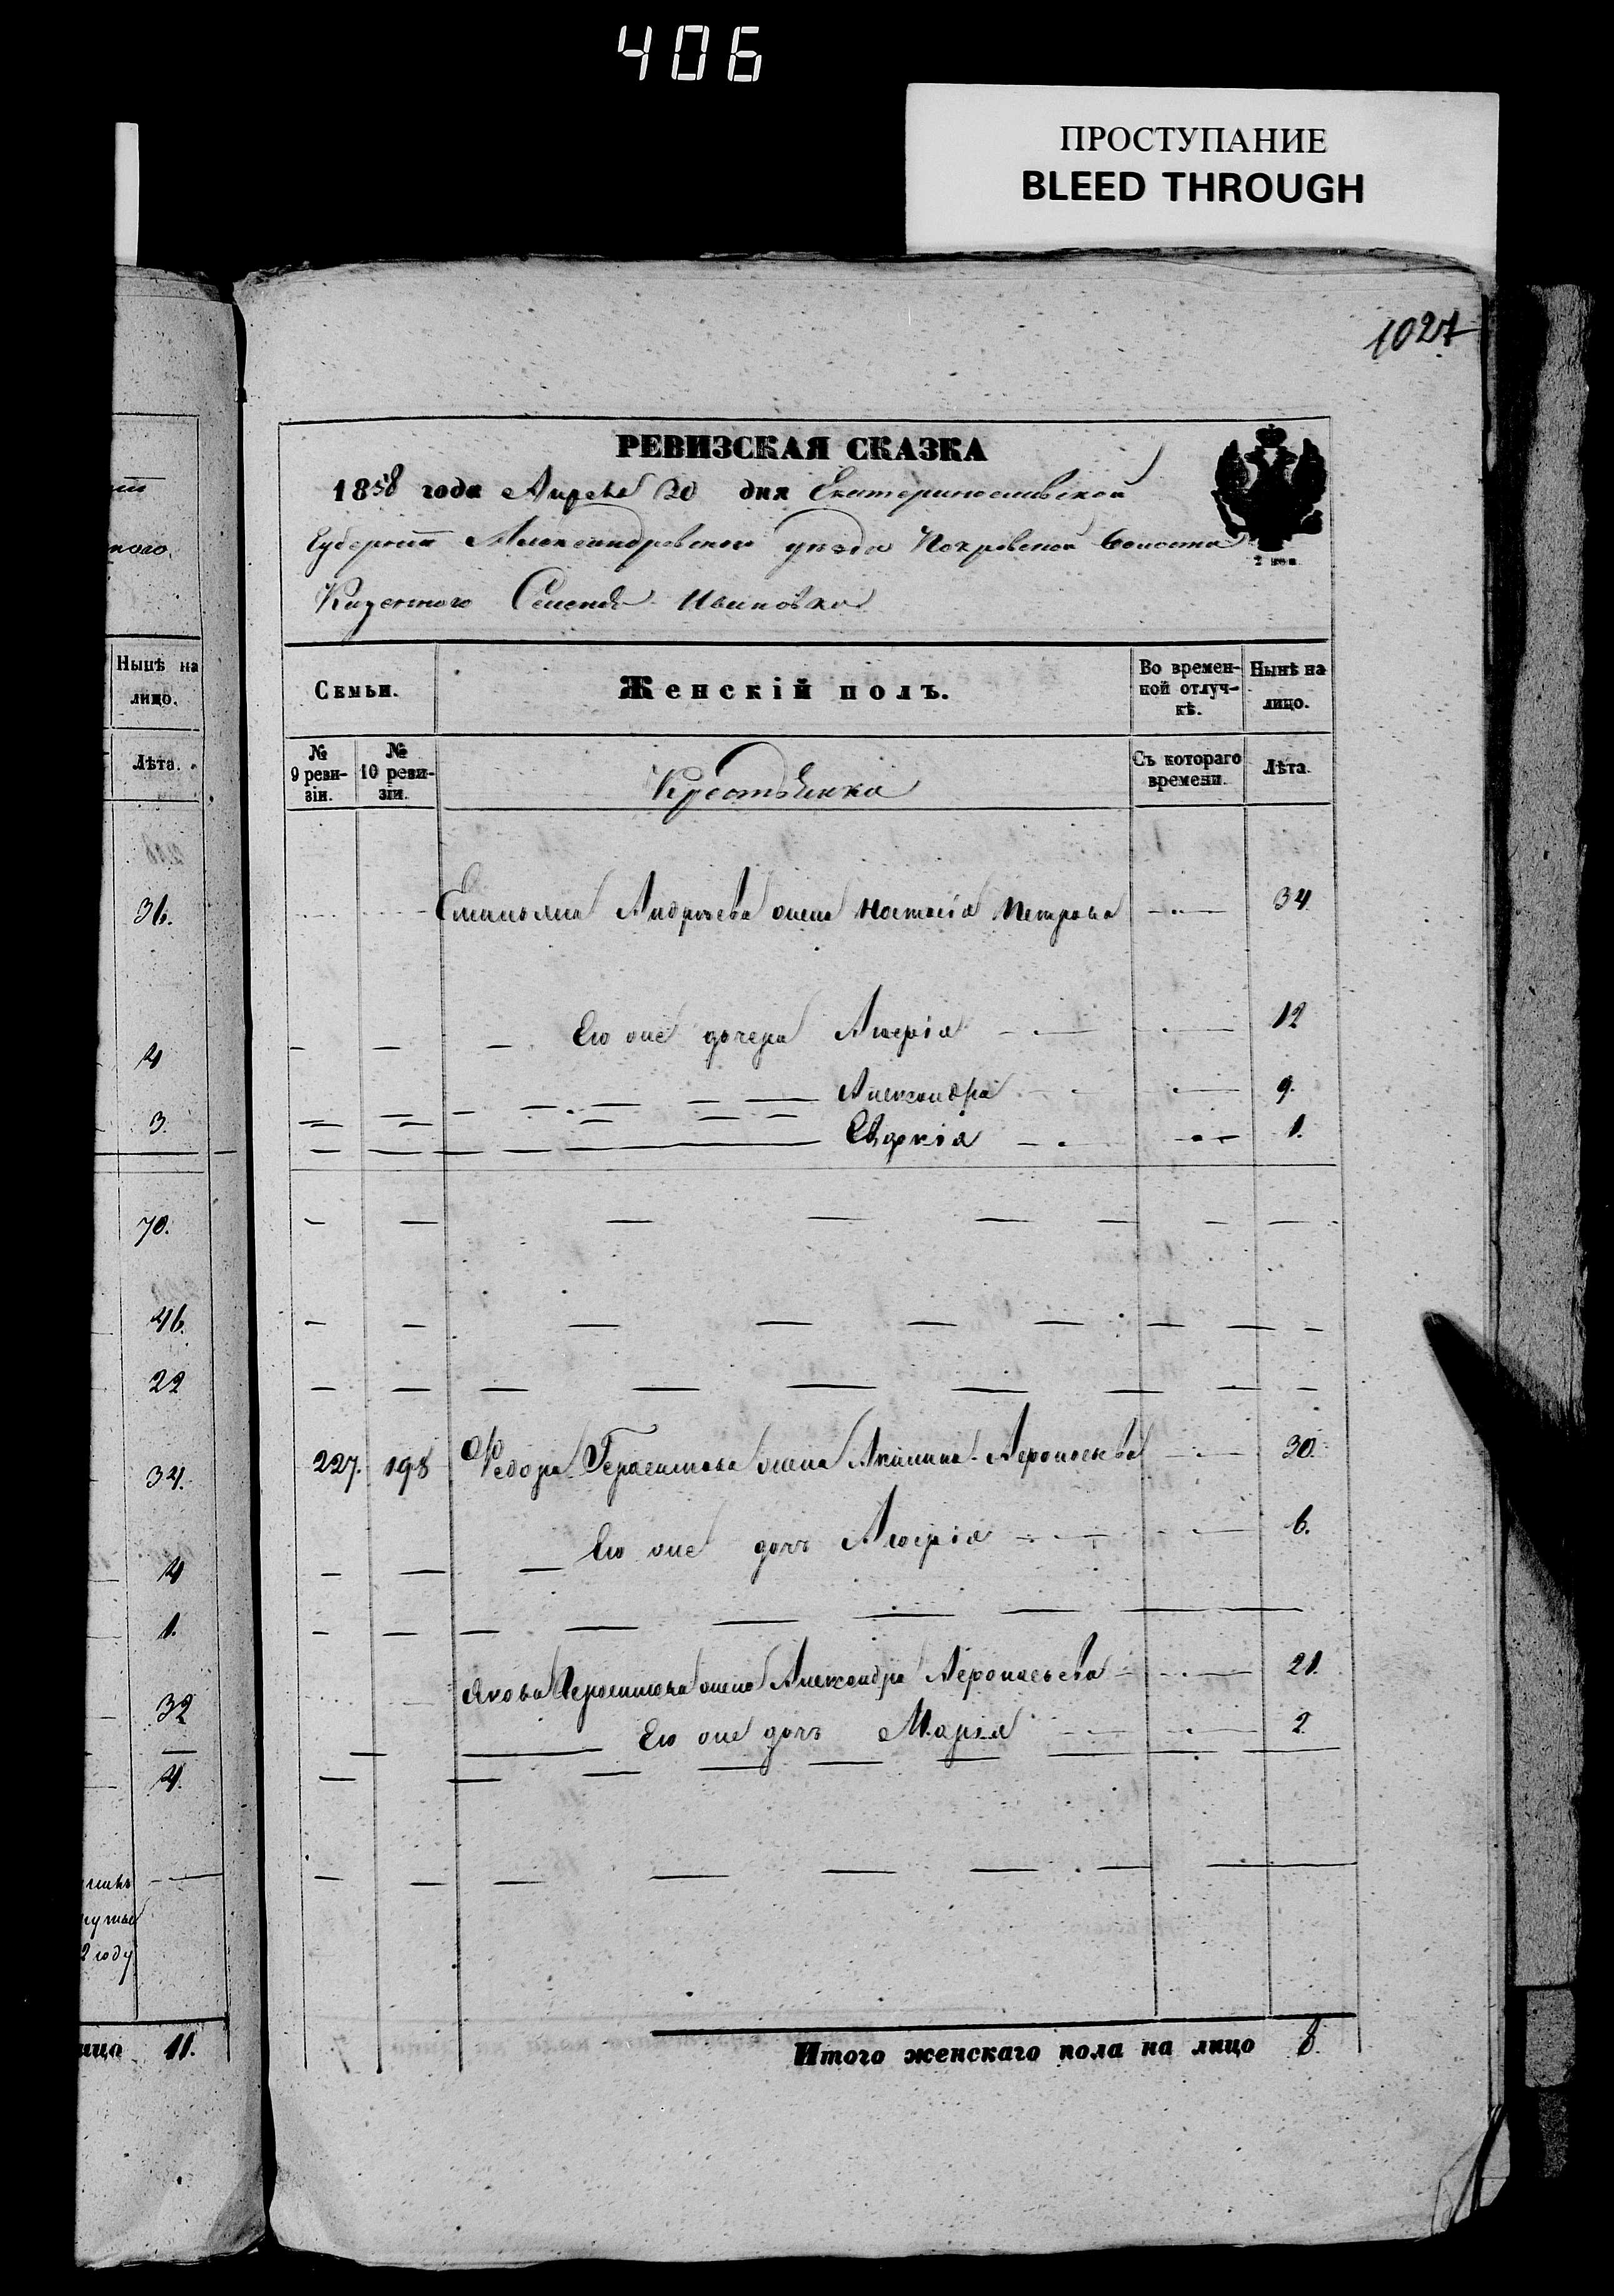 406
ПРОСТУПАНИЕ
BLEED THROUGH
1027
РЕВИЗСКАЯ СКАЗКА
1858 года Апреля 20 дня Екатеринославской
Губернии Александровского уезда Покровской Волости
Казенного Селения Ивановки
Семьи.
Женскій полъ.
Во времен-
ной отлуч-
кѣ.
Нынѣ на
лицо.
№
9 реви-
зіи.
№
10 реви-
зіи.
Крестьянка
Съ котораго
времени.
Лѣта.
Емельяна Андреева жена Настасія Петрова 34
Его же дочери 12
Александра 9.
Евдокія 1.
227. 198 Федора Герасимова жена Акилина 30.
Его же дочь 6.
Якова Герасимова жена Александра 21.
Его же дочь Марія 2
Итого женскаго пола на лицо 8.
Нынѣ на
лицо.
Лѣта.
36.
4
3.
70.
46.
22
34.
4
1.
32
4.
2 году
11.